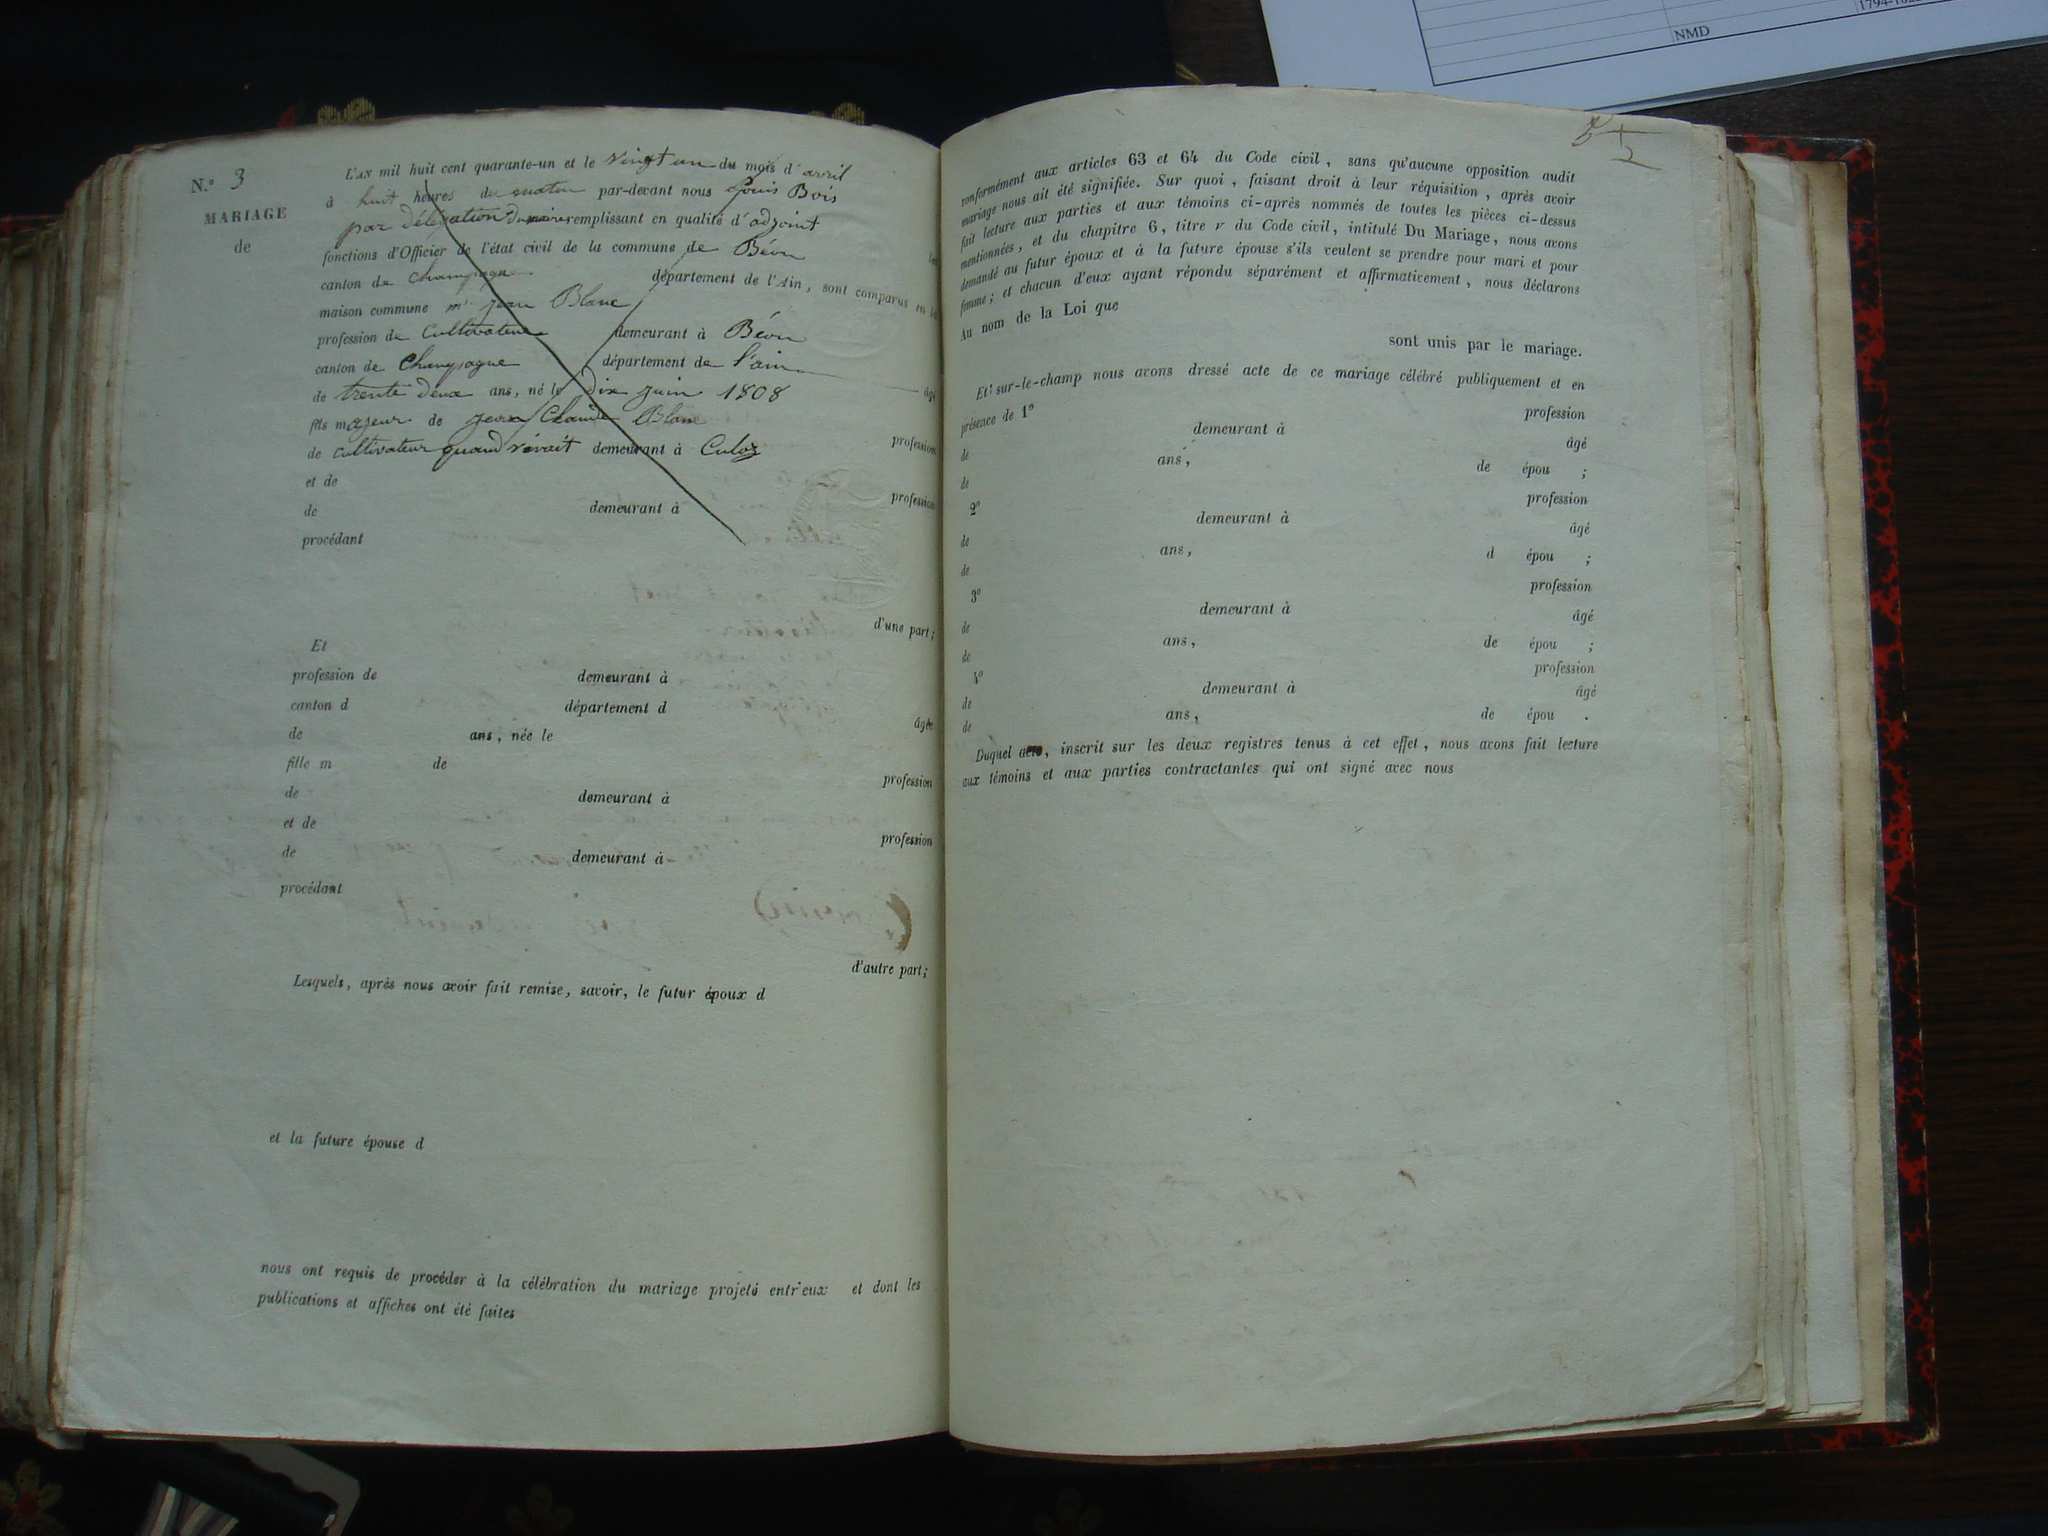 NMD
N.º 3
MARIAGE
de
L'AN mil huit cent quarante-un et le vingt un du mois d'avril
à huit heures du matin par-devant nous Louis Bois
par délégation du maire remplissant en qualité d'adjoint les
fonctions d'Officier de l'état civil de la commune de Béon
canton de Champagne département de l'Ain, sont comparus en la
maison commune mr jean Blanc
profession de Cultivateur demeurant à Béon
canton de Champagne département de l'ain âgé
de trente deux ans, né le dix juin 1808
fils majeur de jean Claude Blanc profession
de cultivateur quand vivait demeurant à Culoz
et de profession
de demeurant à
procédant
d'une part;
Et
profession de demeurant à
canton d département d âgée
de ans, née le
fille m de profession
de demeurant à
et de profession
de demeurant à
procédant
d'autre part;
Lesquels, après nous avoir fait remise, savoir, le futur époux d
et la future épouse d
nous ont requis de procéder à la célébration du mariage projeté entr'eux et dont les
publications et affiches ont été faites
conformément aux articles 63 et 64 du Code civil, sans qu'aucune opposition audit
mariage nous ait été signifiée. Sur quoi, faisant droit à leur réquisition, après avoir
fait lecture aux parties et aux témoins ci-après nommés de toutes les pièces ci-dessus
mentionnées, et du chapitre 6, titre V du Code civil, intitulé Du Mariage, nous avons
demandé au futur époux et à la future épouse s'ils veulent se prendre pour mari et pour
femme; et chacun d'eux ayant répondu séparément et affirmativement, nous déclarons
Au nom de la Loi que
sont unis par le mariage.
Et sur-le-champ nous avons dressé acte de ce mariage célébré publiquement et en
présence de 1º profession
de demeurant à âgé
de ans, de épou ;
2º profession
de demeurant à âgé
de ans, d épou ;
3º profession
de demeurant à âgé
de ans, de épou ;
4º profession
de demeurant à âgé
de ans, de épou .
Duquel acte, inscrit sur les deux registres tenus à cet effet, nous avons fait lecture
aux témoins et aux parties contractantes qui ont signé avec nous